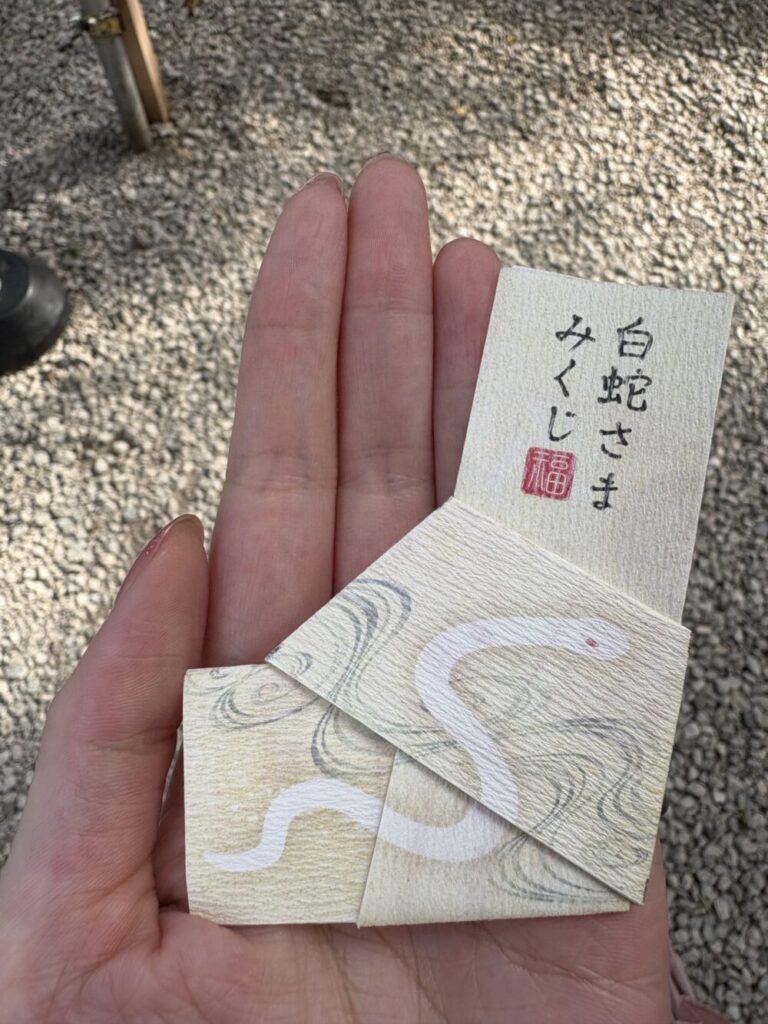 白蛇さま
みくじ
福